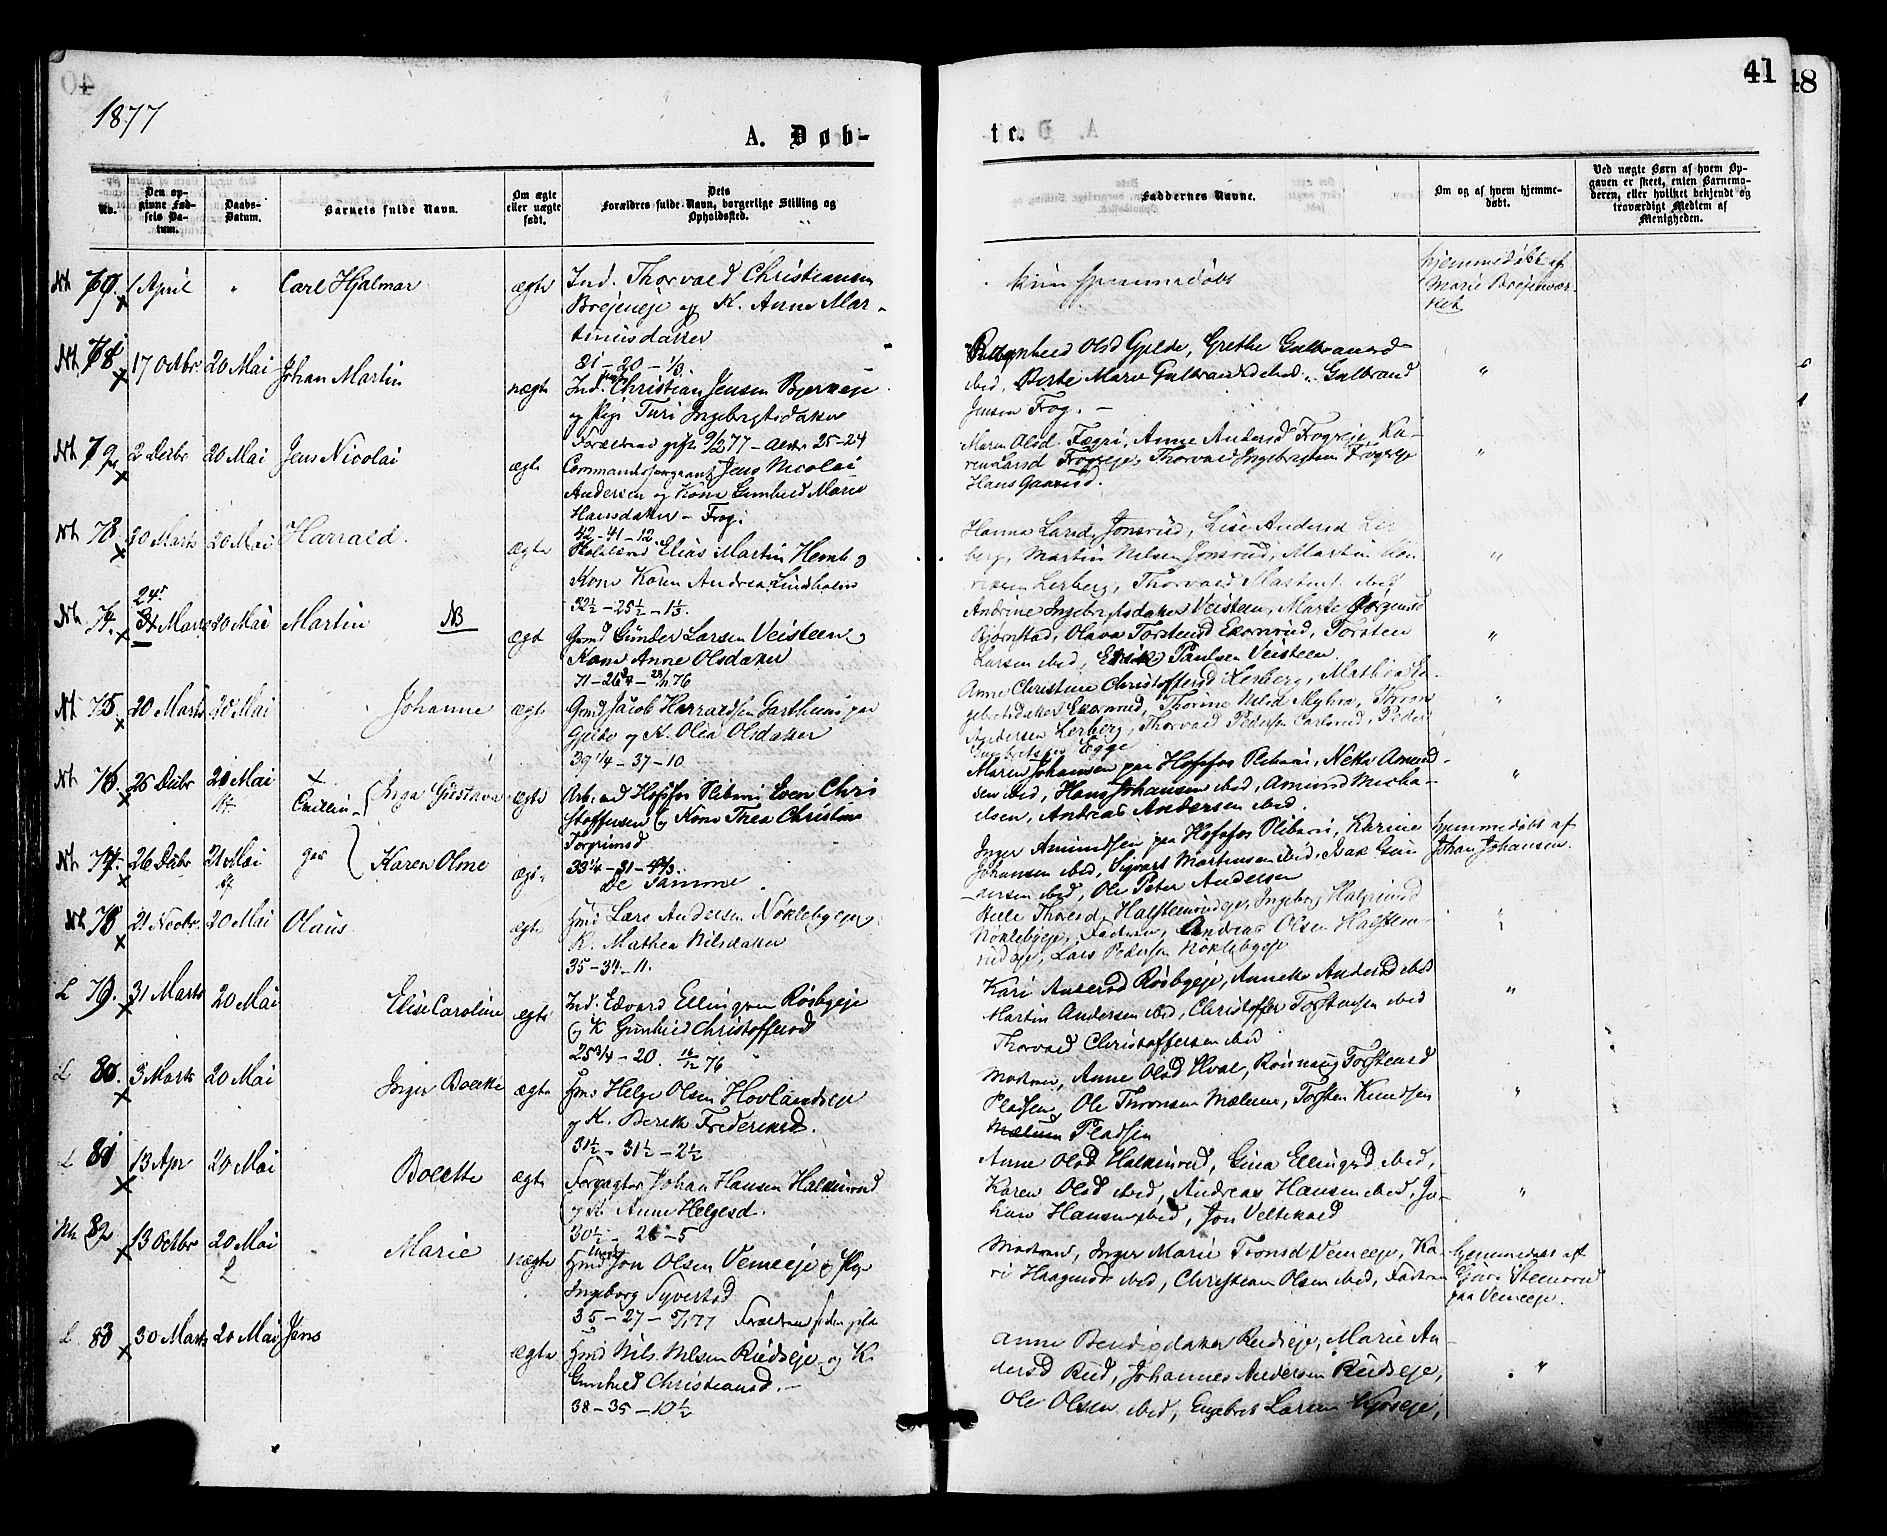 1877
41
48
A. Døb-
te.
No.
Den op-
givne Fød-
sels Da-
tum.
Daabs-
Datum.
Barnets fulde Navn.
Om ægte
eller uægte
født.
Dets
Forældres fulde Navn, borgerlige Stilling og
Opholdssted.
Faddernes Navne.
Om og af hvem hjemme-
døbt.
Ved uægte Børn af hvem Op-
gaven er skeet, enten Barnemo-
deren, eller hvilket bekjendt og
troværdigt Medlem af
Menigheden.
70. 1 April " Carl Hjalmar ægte Ind. Thorvald Christiansen
og K. Anne Mar-
tinusdatter
21 - 20 - 1/3.
hjemmedøbt
hjemmedøbt af
Marie
71 17 Octbr 20 Mai Johan Martin uægte Ind. Christian Jensen Bjerkeeje
og Pige Turi Ingebrigtsdatter
Forældrene gift 9/2 77 - 25-24
Olsd Gjelde, Grethe Gulbrandsd
ibid, Berte Marie Gulbrandsd ibid, Gulbrand
Jensen Frog. -
"
72 2 Decbr 20 Mai Jens Nicolai ægte Commandersergeant Jens Nicolai
Andersen og Kone Gunhild Marie
Hansdatter - Frog.
42 - 41 - 12
Maren Olsd. Anne Andersd Frogeje, Ka-
ren Larsd Frogeje, Thorvald Ingebrigtsen Frogeje
Hans Gaarud.
"
73 20 Marts 20 Mai Harrald. ægte Elias Martin
Kone Karen Andrea Lindholm
32½ - 25½ - 1⅓
Hanna Larsd Jonsrud, Lise Andersd Ler-
berg, Martin Nilsen Jonsrud, Martin
Lerberg, Thorvald Martins. ibid
"
74. 24de Marts 20 Mai Martin NB ægte Grmd Gunder Larsen Veisteen og
Kone Anne Olsdatter
Andrine Ingebrigtsdatter Veisteen, Marte Jørgensd
Bjørnstad, Olava Torstensd Ekornrud, Torsten
Larsen ibid, Erik Paulsen Veisteen
"
75 20 Marts 20 Mai Johanne ægte Grmd Jacob Harraldsen
og K. Olea Olsdatter
39¼ - 37 - 10
Anne Christine Christoffersd Lerberg, Mathea In-
gebretsdatter Ekornrud, Thorine Nilsd Myhre, Thron
Andersen Lerberg, Thorvald Pedersen Carlsrud, Peder
Engbretsen Egge
"
76. 25 Decbr 20 Mai Inga Gustava ægte Arb. ved Hofsfos Sliberi Even Chri
stoffersen og Kone Thea Christine
Torgrimsd
33¼ - 31 - 4⅔.
Maren Johansen paa Hofsfos Sliberi, Nette Amund-
sen ibid, Hans Johansen ibid, Amund Micha-
elsen, Andreas Andersen ibid.
"
77. 26 Decbr 21 Mai Karen Olme ægte De Samme.
Inger Amundsen paa Hofsfos Sliberi, Karine
Johansen ibid, Sigvart Martinsen ibid, Isak Gun
dersen ibid, Ole Peter Andersen
hjemmedøbt af
Johan Johansen.
78 21 Novbr. 20 Mai Olaus ægte Hmd Lars Andersen Nøklebyeje
K. Mathea Nilsdatter
35 - 34 - 11.
Helle Thorsd Halsteenrudeje, Ingeborg Halgrimsd
Nøklebyeje, Faderen, Andreas Olsen Halsteen-
rudeje, Lars Pedersen Nøklebyeje
"
L 79. 31 Marts 20 Mai Elise Caroline ægte Ind. Edvard Ellingsen Røsbyeje
og K Gunhild Christoffersd
25¾ - 20. 76
Kari Andersd Røsbyeje, Annette Andersd ibid
Martin Andersen ibid, Christoffer Torstensen ibid
Thorvald Christoffersen ibid
"
L 80. 3 Marts 20 Mai Inger Bolette ægte Hmd Helge Olsen Hovlandseje
og K. Berthe Frederiksd.
31½ - 31½ - 2½
Modren, Anne Olsd Hval, Rønnaug Torstensd
Pladsen, Ole Thronsen Mælum, Torsten Knudsen
Mælum Pladsen
"
L 81 13 Apr 20 Mai Bolette ægte Forpagter Johan Hansen Halkinrud
og K. Anne Helgesd.
30½ - 26 - 5
Anne Olsd Halkinrud, Gina Ellingsd ibid,
Karen Olsd ibid, Andreas Hansen ibid, Jo-
han Hansen ibid, Jon Veltekold
"
82 13 Octbr 20 Mai Marie uægte Hmd Jon Olsen Vemeeje & Pige
Ingeborg Syverstad
35 - 27 - 5/1 77 Forældrene siden gifte
Modren, Inger Marie Tronsd Vemeeje, Ka-
ri Haagensd ibid, Christian Olsen ibid, Fadren
hjemmedøbt af
Guri Steenrud
paa Vemeeje.
L 83 30 Marts 20 Mai Jens ægte Hmd Nils Nilsen Rudseje og K.
Gunhild Christiansd. -
38 - 35 - 10½
Anne Bendixdatter Rudseje, Marie An-
dersd Rud, Johannes Andersen Rudseje,
Ole Olsen ibid, Engebret Larsen
"